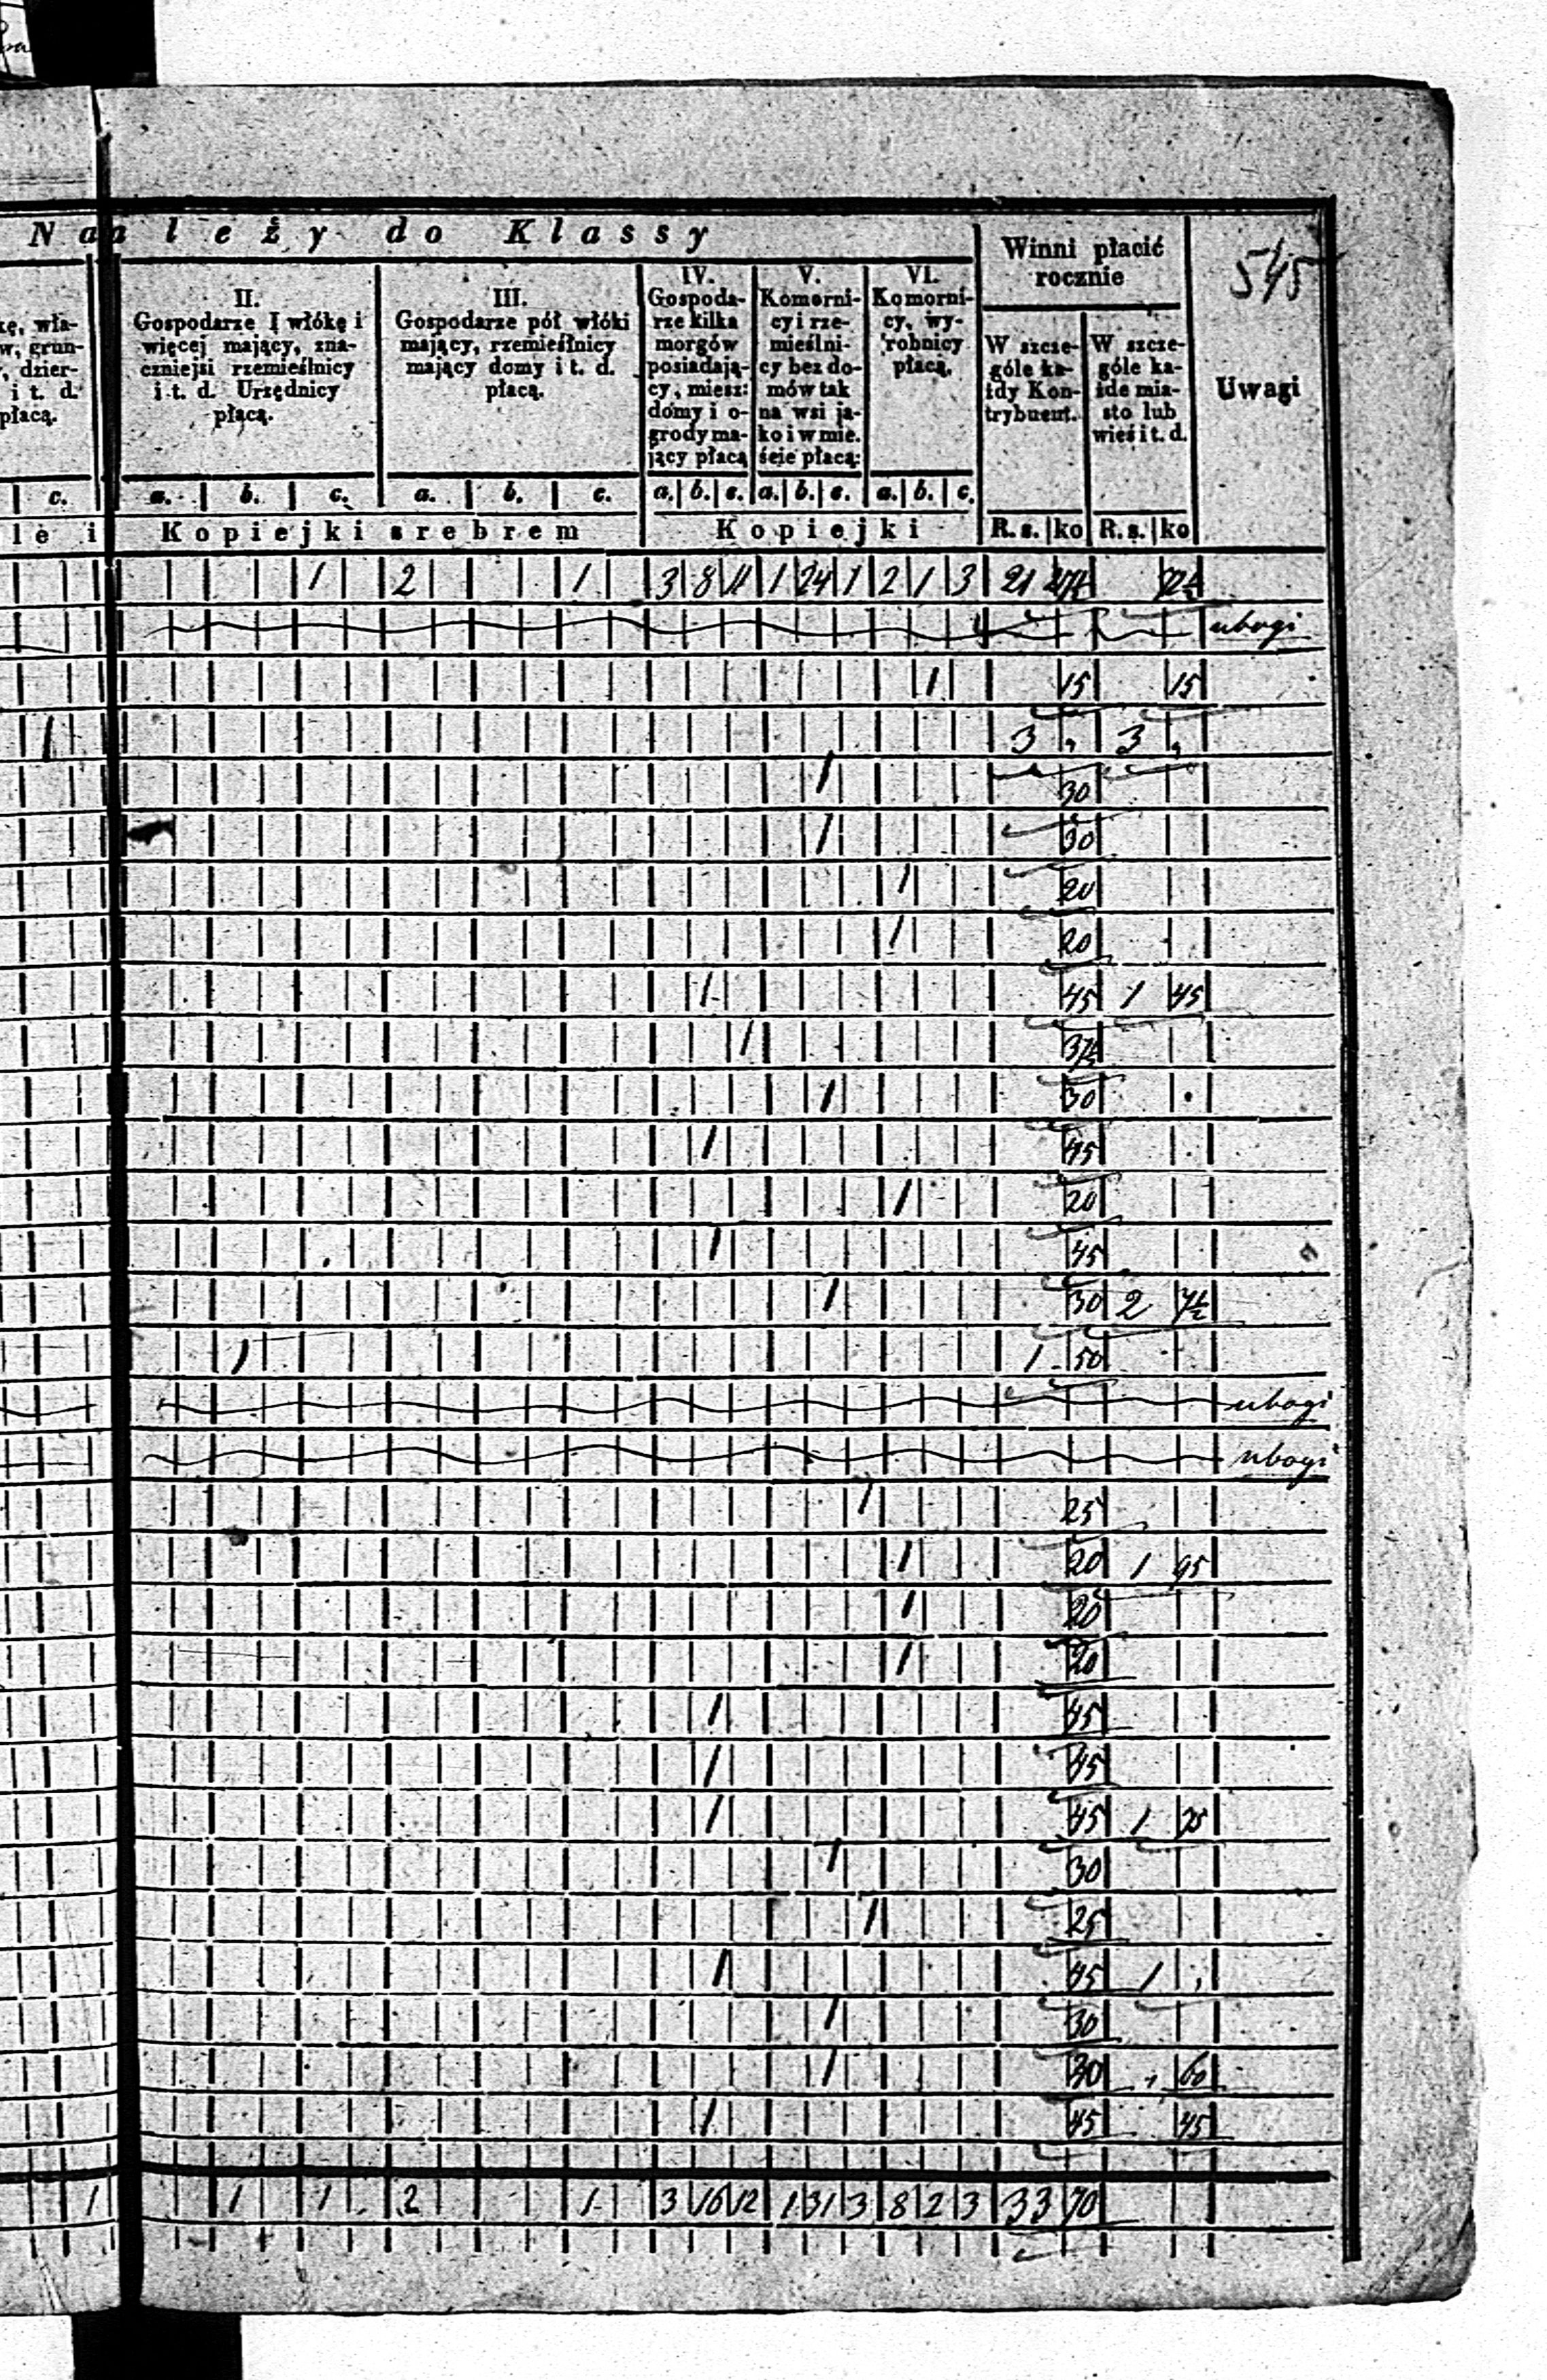 Należy do Klassy
Winni płacić rocznie
545
kę, wła-
w, grun-
, dzier-
i t. d.
płacą.
II.
Gospodarze I włókę i
więcej mający, zna-
czniejsi rzemieślnicy
i t. d. Urzędnicy
płacą.
III.
Gospodarze pół włóki
mający, rzemieślnicy
mający domy i t. d.
płacą.
IV.
Gospoda-
rze kilka
morgów
posiadają-
cy, miesz:
domy i o-
grody ma-
jący płacą
V.
Komorni-
cy i rze-
mieślni-
cy bez do-
mów tak
na wsi ja-
ko i w mie.
ście płacą:
VI.
Komorni-
cy, wy-
robnicy
płacą.
W szcze-
góle ka-
żdy Kon-
trybuent.
W szcze-
góle ka-
żde mia-
sto lub
wieś i t. d.
Uwagi
c. a. b. c. a. b. c. a. b. c. a. b. c. a. b. c.
le i Kopiejki srebrem Kopiejki R. s. ko R. s. ko
1 2 1 3 8 11 1 24 1 2 1 3 21 27½
ubogi
1 15 15
1 3 „ 3 „
1 30
1 30
1 20
1 20
1 45 1 45
1 37½
1 30
1 45
1 20
1 45
1 30 2 7½
1 1 50
ubogi
ubogi
1 25
1 20 1 95
1 20
1 20
1 45
1 45
1 45 1 75
1 30
1 25
1 45 1 „
1 30
1 30 „ 60
1 45 45
1 1 1 2 1 3 16 12 1 31 3 8 2 3 33 70